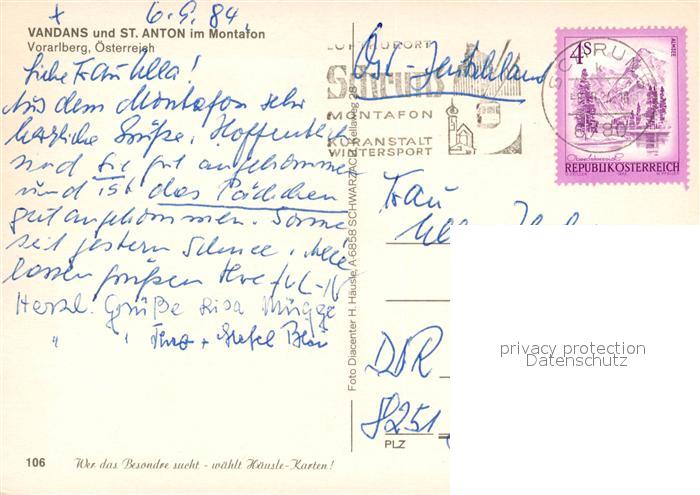 6.9.84
VANDANS und ST. ANTON im Montafon
Vorarlberg, Österreich
Liebe Frau Ulla!
Aus dem Montafon sehr
herzliche Grüße. Hoffentlich
sind Sie gut angekommen
und ist das Päckchen
gut angekommen. Sonne
seit gestern Schnee. Alle
lassen grüßen Ihre
Herzl. Grüße Lisa Mügge
" "
Foto Diacenter H. Häusle, A-6858 SCHWARZACH, Kellaweg 28
106
Wer das Besondre sucht - wählt Häusle-Karten!
LUFTKURORT
Schruns
MONTAFON
KURANSTALT
WINTERSPORT
Ost-Deutschland
SCHRUNS
4S
ALMSEE
REPUBLIK ÖSTERREICH
Frau
Ulla
privacy protection
Datenschutz
DDR
8251
PLZ